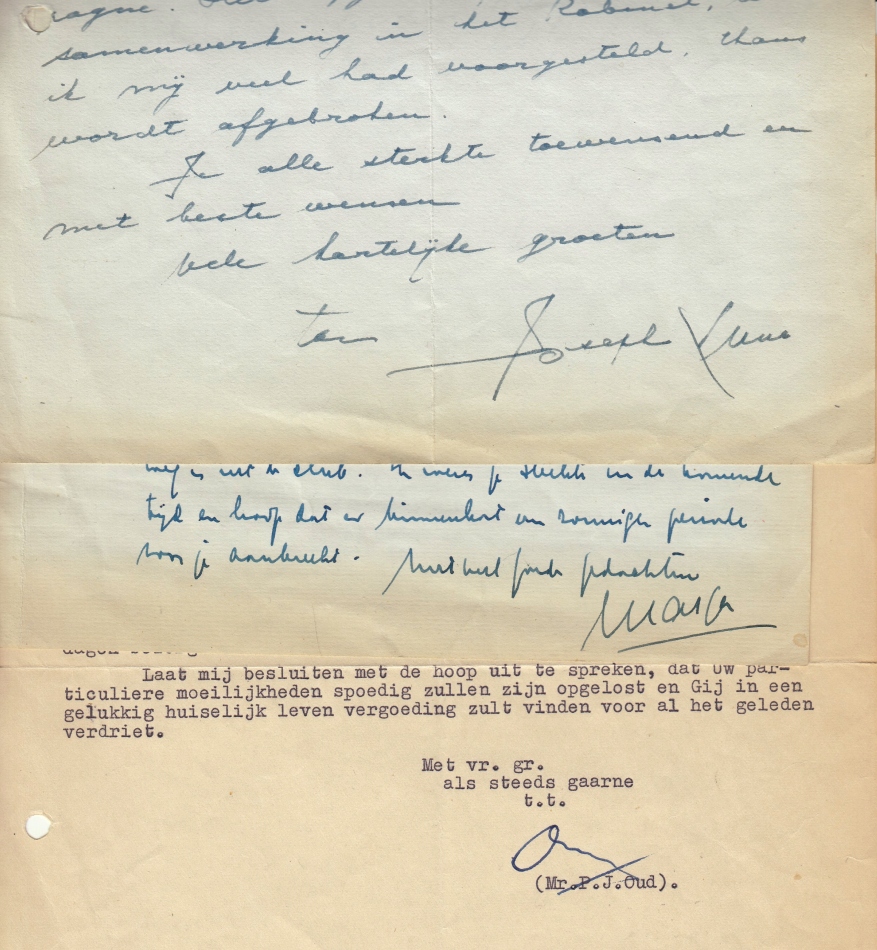 samenwerking in het Kabinet,
ik mij veel had voorgesteld, thans
wordt afgebroken.
Je alle sterkte toewensend en
met beste wensen
vele hartelijke groeten
ton Joseph Luns
weg is uit de club. Ik wens je sterkte in de komende
tijd en hoop dat er binnenkort een zonnige periode
voor je aanbreekt. Met veel goede gedachten
Marga
dagen
Laat mij besluiten met de hoop uit te spreken, dat Uw par-
ticuliere moeilijkheden spoedig zullen zijn opgelost en Gij in een
gelukkig huiselijk leven vergoeding zult vinden voor al het geleden
verdriet.
Met vr. gr.
als steeds gaarne
t.t.
(Mr.P.J.Oud).